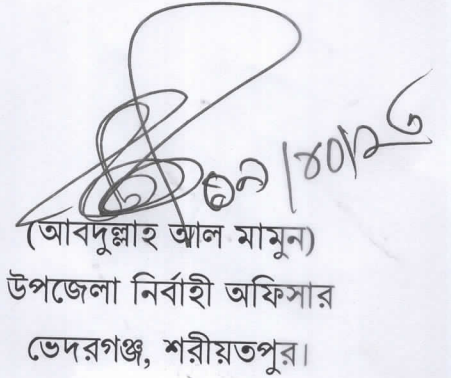 (আবদুল্লাহ আল মামুন)
উপজেলা নির্বাহী অফিসার
ভেদরগঞ্জ, শরীয়তপুর।